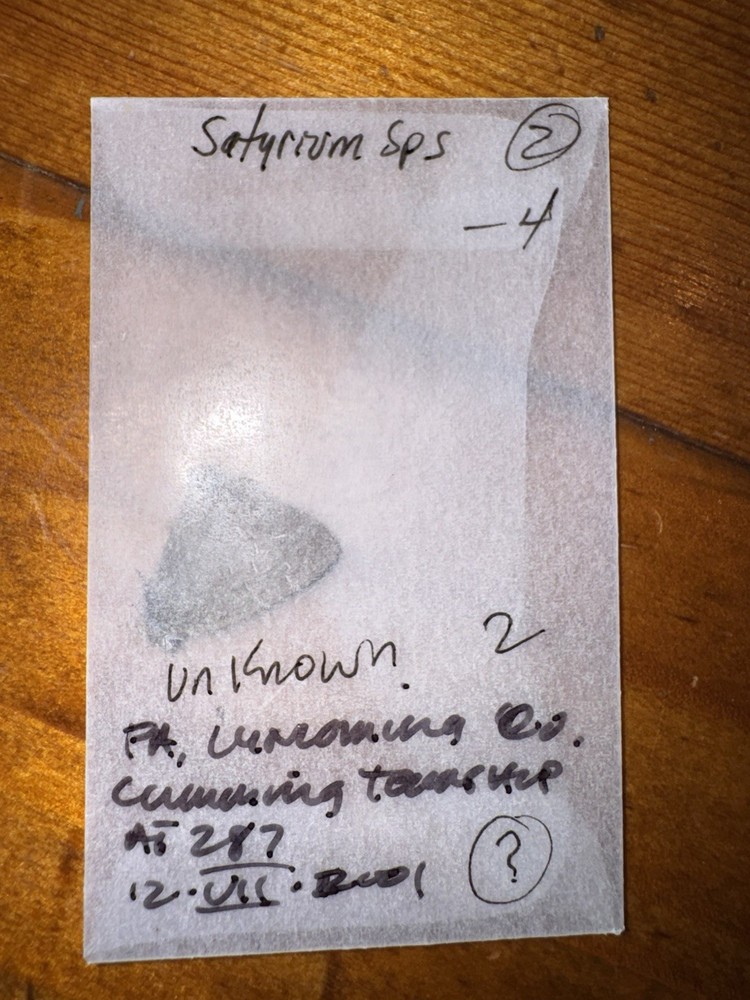 Satyrium Sps 2
-4
2
unknown.
PA, Lycoming Co.
Cummings Township
AT 287
12. VII. 2001
?